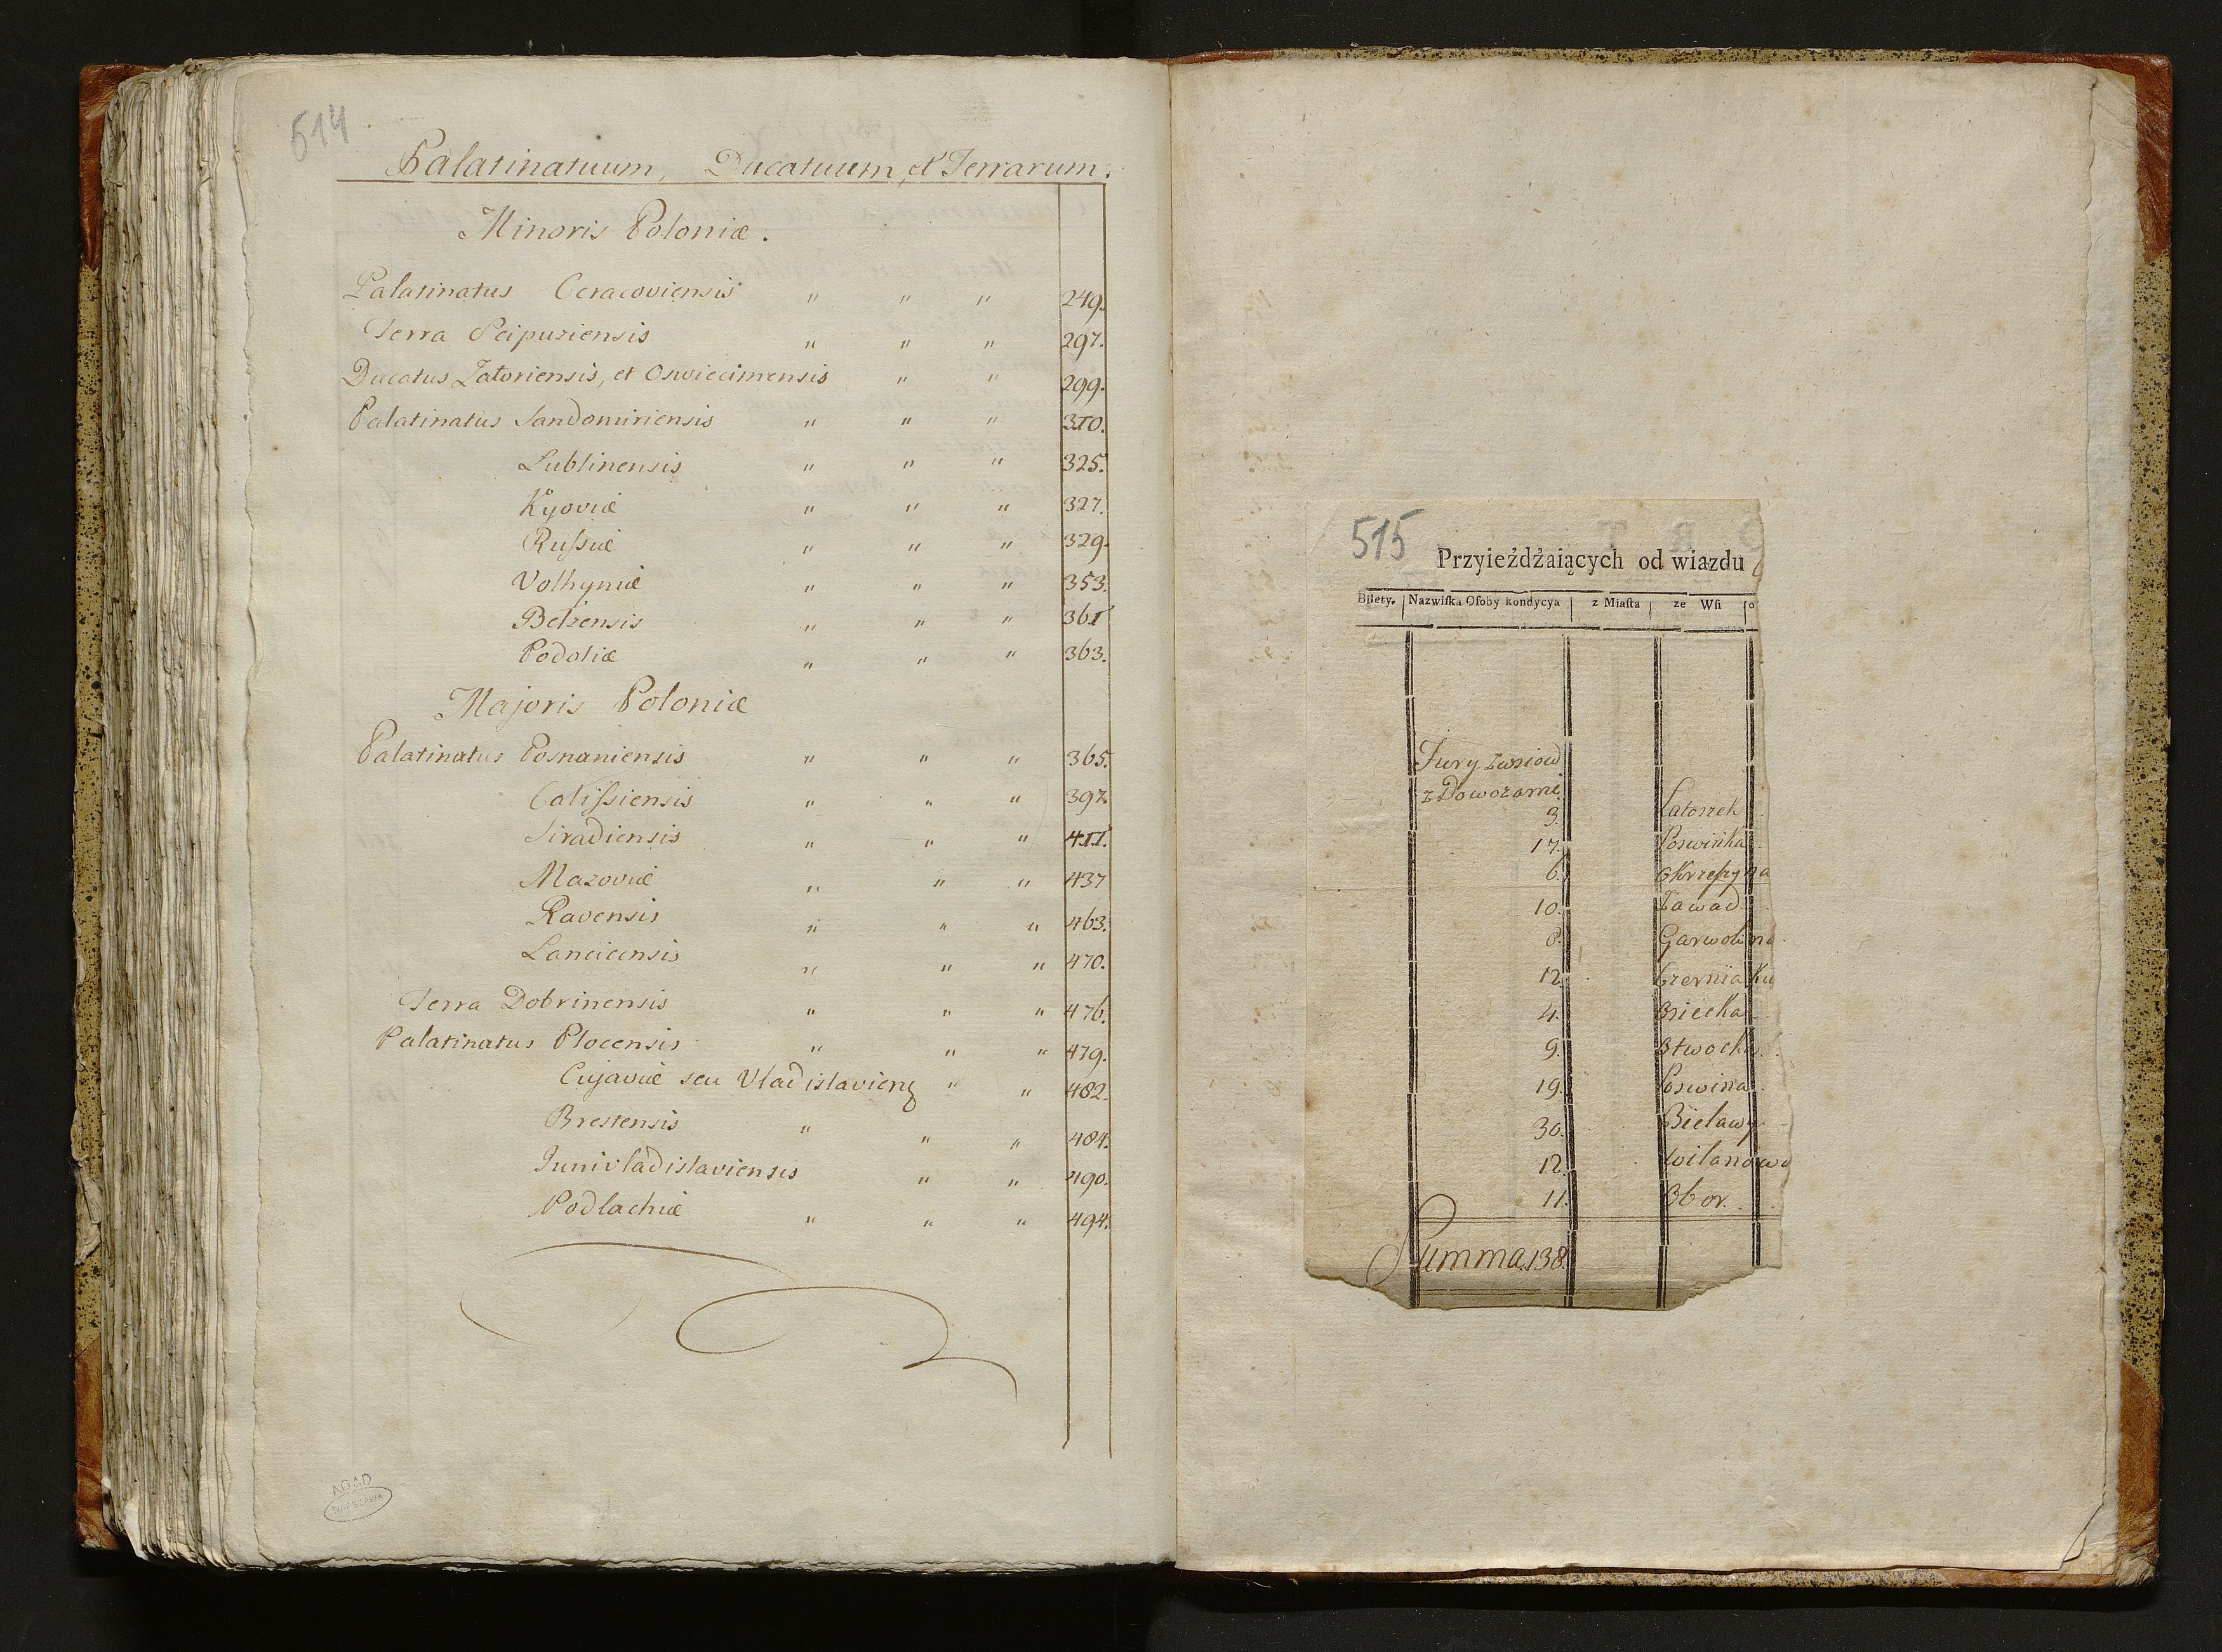 514
Palatinatuum, Ducatuum, et Terrarum.
Minoris Poloniæ.
Palatinatus Ccracoviensis " " " 249.
Terra Scipusiensis " " " 297.
Ducatus Zatoriensis, et Oswiecimensis " " 299.
Palatinatus Sandomiriensis " " " 310.
Lublinensis " " " 325.
Kyoviæ " " " 327.
Russiæ " " " 329.
Volhyniæ " " " 353.
Belzensis " " " 361
Podoliæ " " " 363.
Majoris Poloniæ
Palatinatus Posnaniensis " " " 365.
Calissiensis " " " 397.
Siradiensis " " " 411.
Mazoviæ " " " 437
Ravensis " " " 463.
Lancicensis " " " 470.
Terra Dobrinensis " " " 476.
Palatinatus Plocensis " " " 479.
Cujaviæ seu Vladislavien " " 482.
Brestensis " " " 484.
Junivladislaviensis " " 490.
Podlachiæ " " " 494.
AGAD
WARSZAWA
515
Przyieżdżaiących od wiazdu
Bilety. Nazwiſka Oſoby kondycya z Miaſta ze Wſi o
Fury zwsiow
z Dowozami
3. Latoszek
17. Poswinka
6. Okrzeszyna
10. Zawad
8. Garwolina
12. Czerniaku
4. Osiecka
9. Otwocka
19. Poswina
30. Bielawy
12. Wilanowa
11. Obor.
Summa 138.